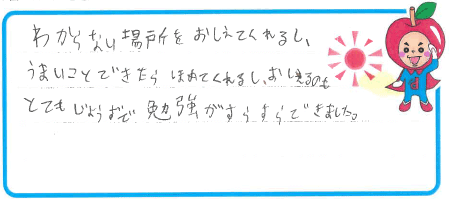 わからない場所をおしえてくれるし、
うまいことできたらほめてくれるし、おしえるのも
とてもじょうずで勉強がすらすらできました。